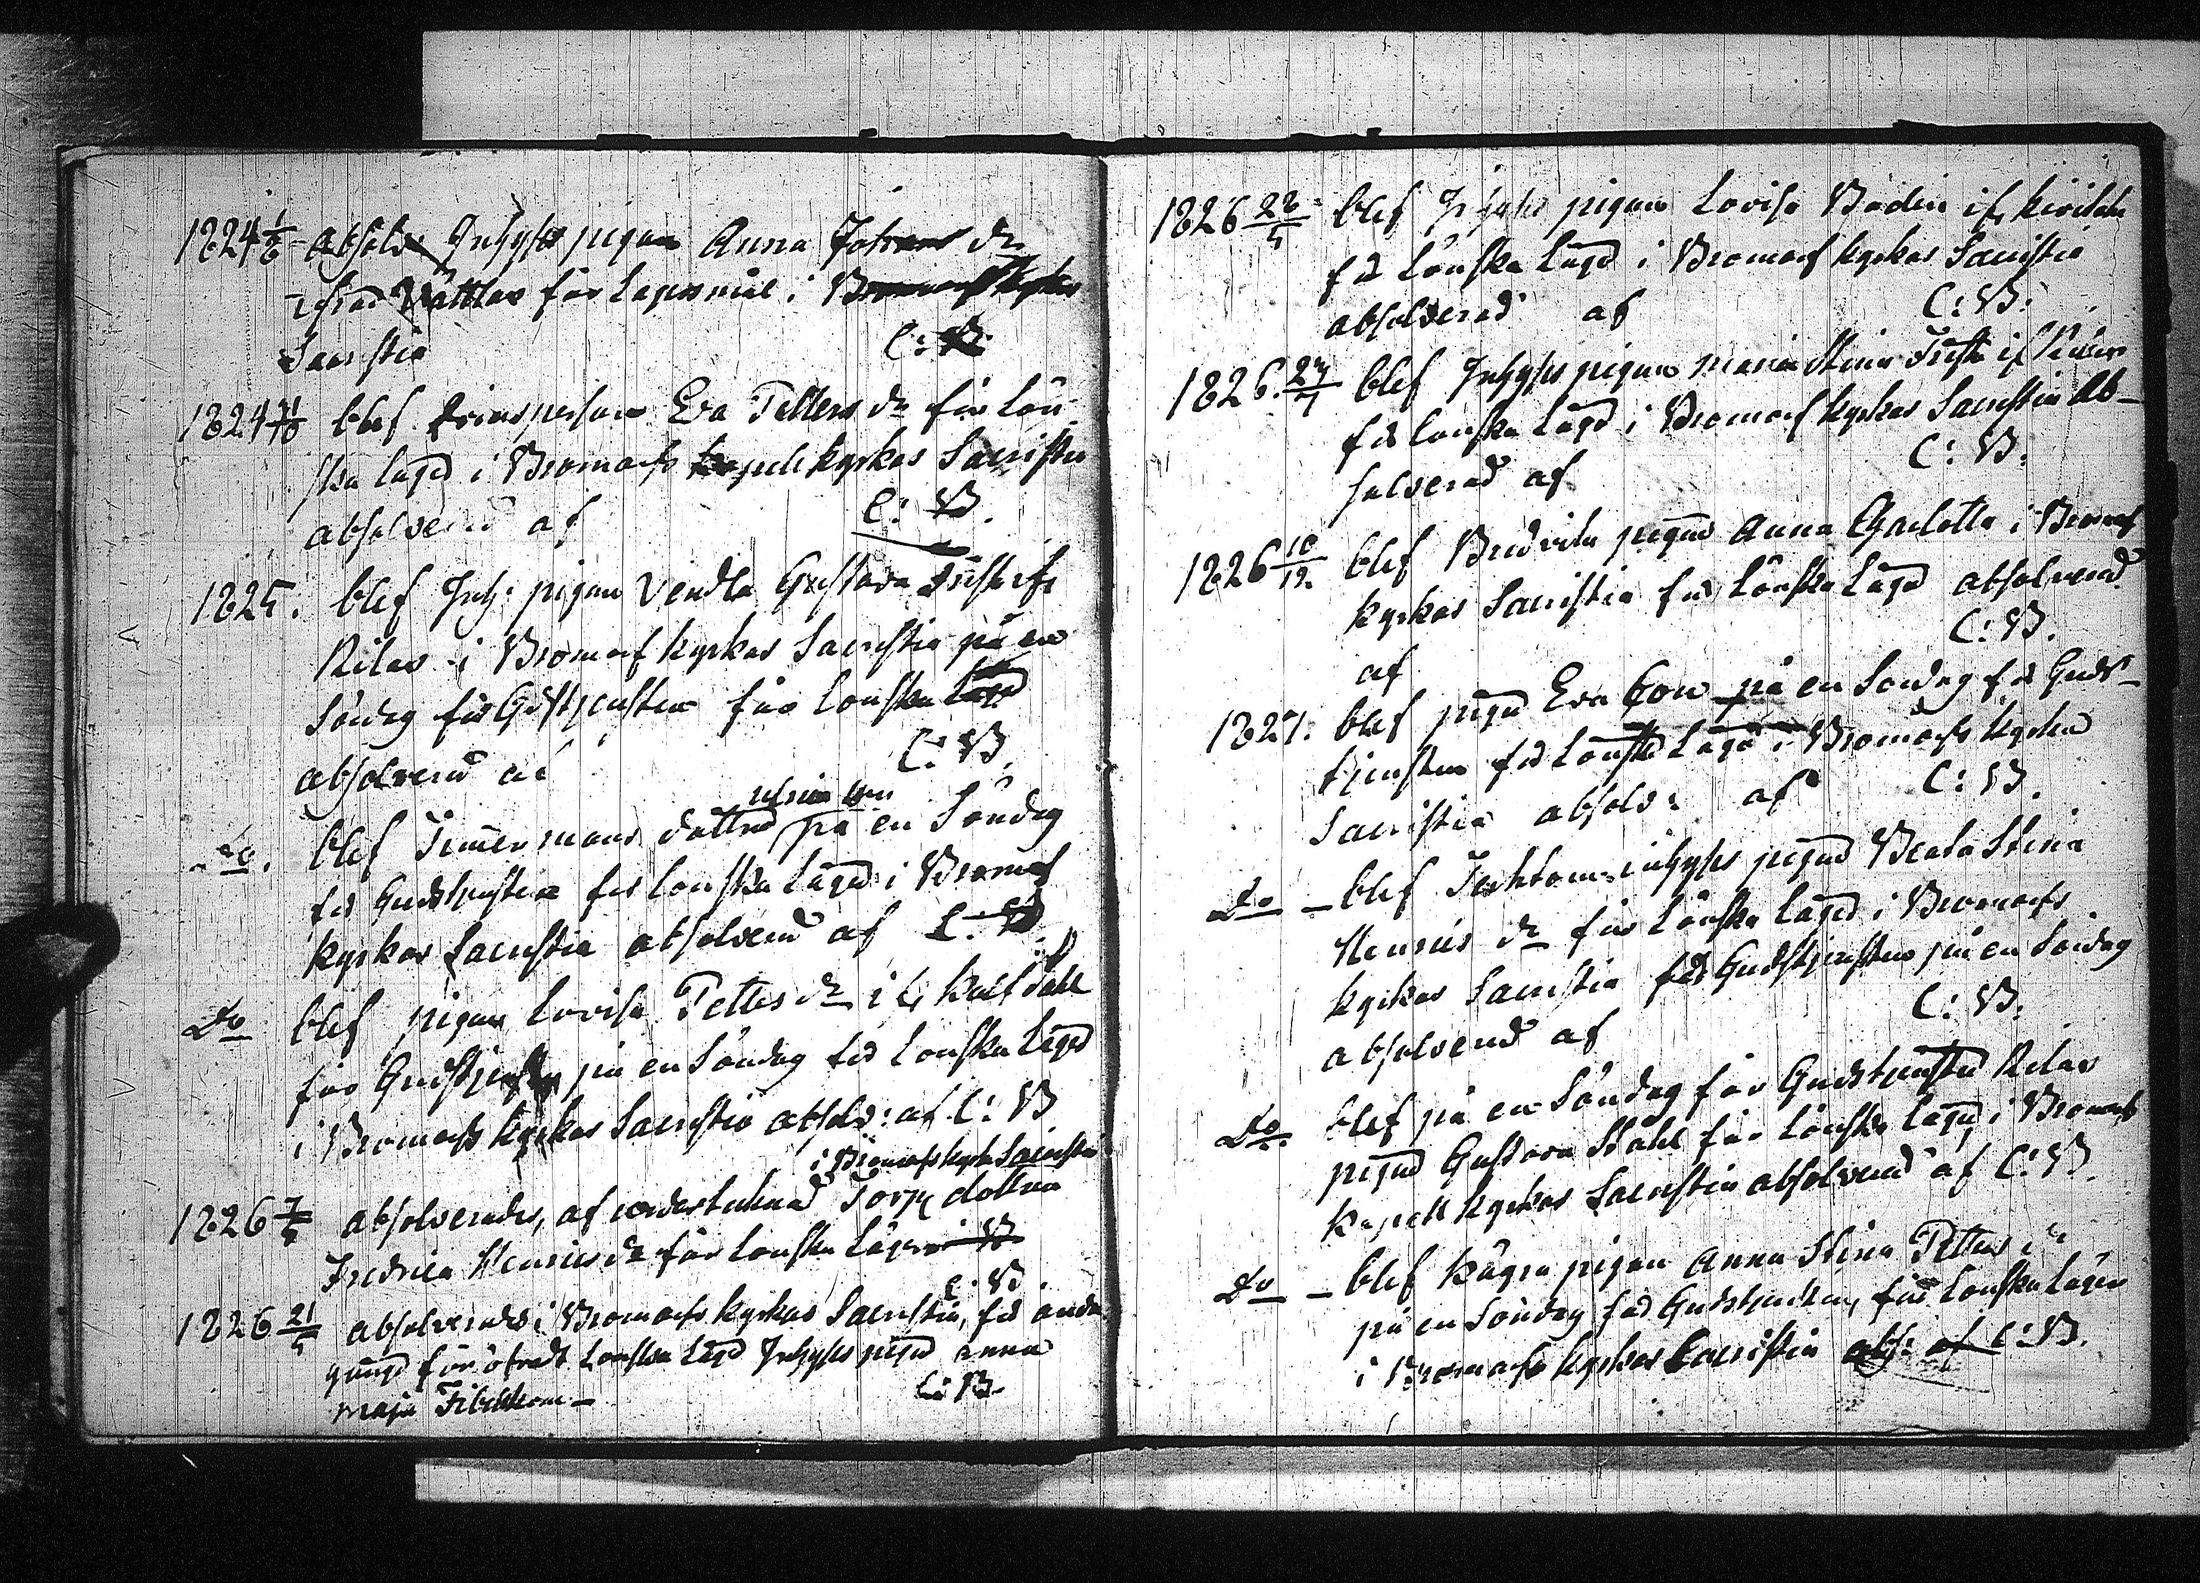 1824 1/8 absolv: Inhyses pigan Anna Johans dr
från Vättlax för Lägersmål i Bromarf kyrkas
Sacristia C: B.
1824 blef qvinspersonen Eva Petters dr för Lön-
ska Läge i Bromarfs kapell kyrkas Sacristia
absolverad af C: B.
1825. blef Inh: pigan Vendla Gustava
Rilax i Bromarf kyrkas Sacristia på en
Söndag för Gudstjensten för Lönska Läge
absolverad af C: B.
do. blef Timmermans dottren på en Söndag
för Gudstjensten för Lönska Läge i Bromarf
kyrkas Sacristia absolverad af C: B
Do blef pigan Lovisa Petters dr i Kalfdahl
för Gudstjensten på en Söndag för Lönska Läge
i Bromarfs kyrkas Sacristia absolv: af C: B
i Bromarfs kyrkas Sacristia
1826 7/5 absolverades, af undertecknad Torp dottren
Fredrica Henrics dr för Lönska Läge
C: B.
1826 21/5 absolverades i Bromarfs kyrkas Sacristia, för andra
gången för öfvadt Lönska Läge Inhyses pigan Anna
Maja C: B.
1826 28/5 blef Inhyses pigan Lovisa Bodin if
för Lönska Läge i Bromarf kyrkas Sacristia
absolverad af C: B:
1826. 27/7 blef Inhyses pigan Maria Stina if
för Lönska Läge i Bromarf kyrkas Sacristia Ab-
solverad af C: B.
1826 10/12 blef pigan Anna Charlotta i Bromarf
kyrkas Sacristia för Lönska Läge absolverad
af C: B.
1827. blef pigan Eva på en Söndag för Guds-
tjensten för Lönska Läge i Bromarfs kyrkas
Sacristia absolv: af C: B.
Do – blef inhyses pigan Beata Stina
Henrics dr för Lönska Läge i Bromarfs
kyrkas Sacristia för Gudstjensten på en Söndag
absolverad af C: B.
Do blef på en Söndag för Gudstjensten Rilax
pigan Gustava Stahl för Lönska Läge i Bromarfs
kapell kyrkas Sacristia absolverad af C: B.
Do – blef pigan Anna Stina Petters dr
på en Söndag för Gudstjensten, för Lönska Läge
i Bromarfs kyrkas Sacristia abs: af C: B.